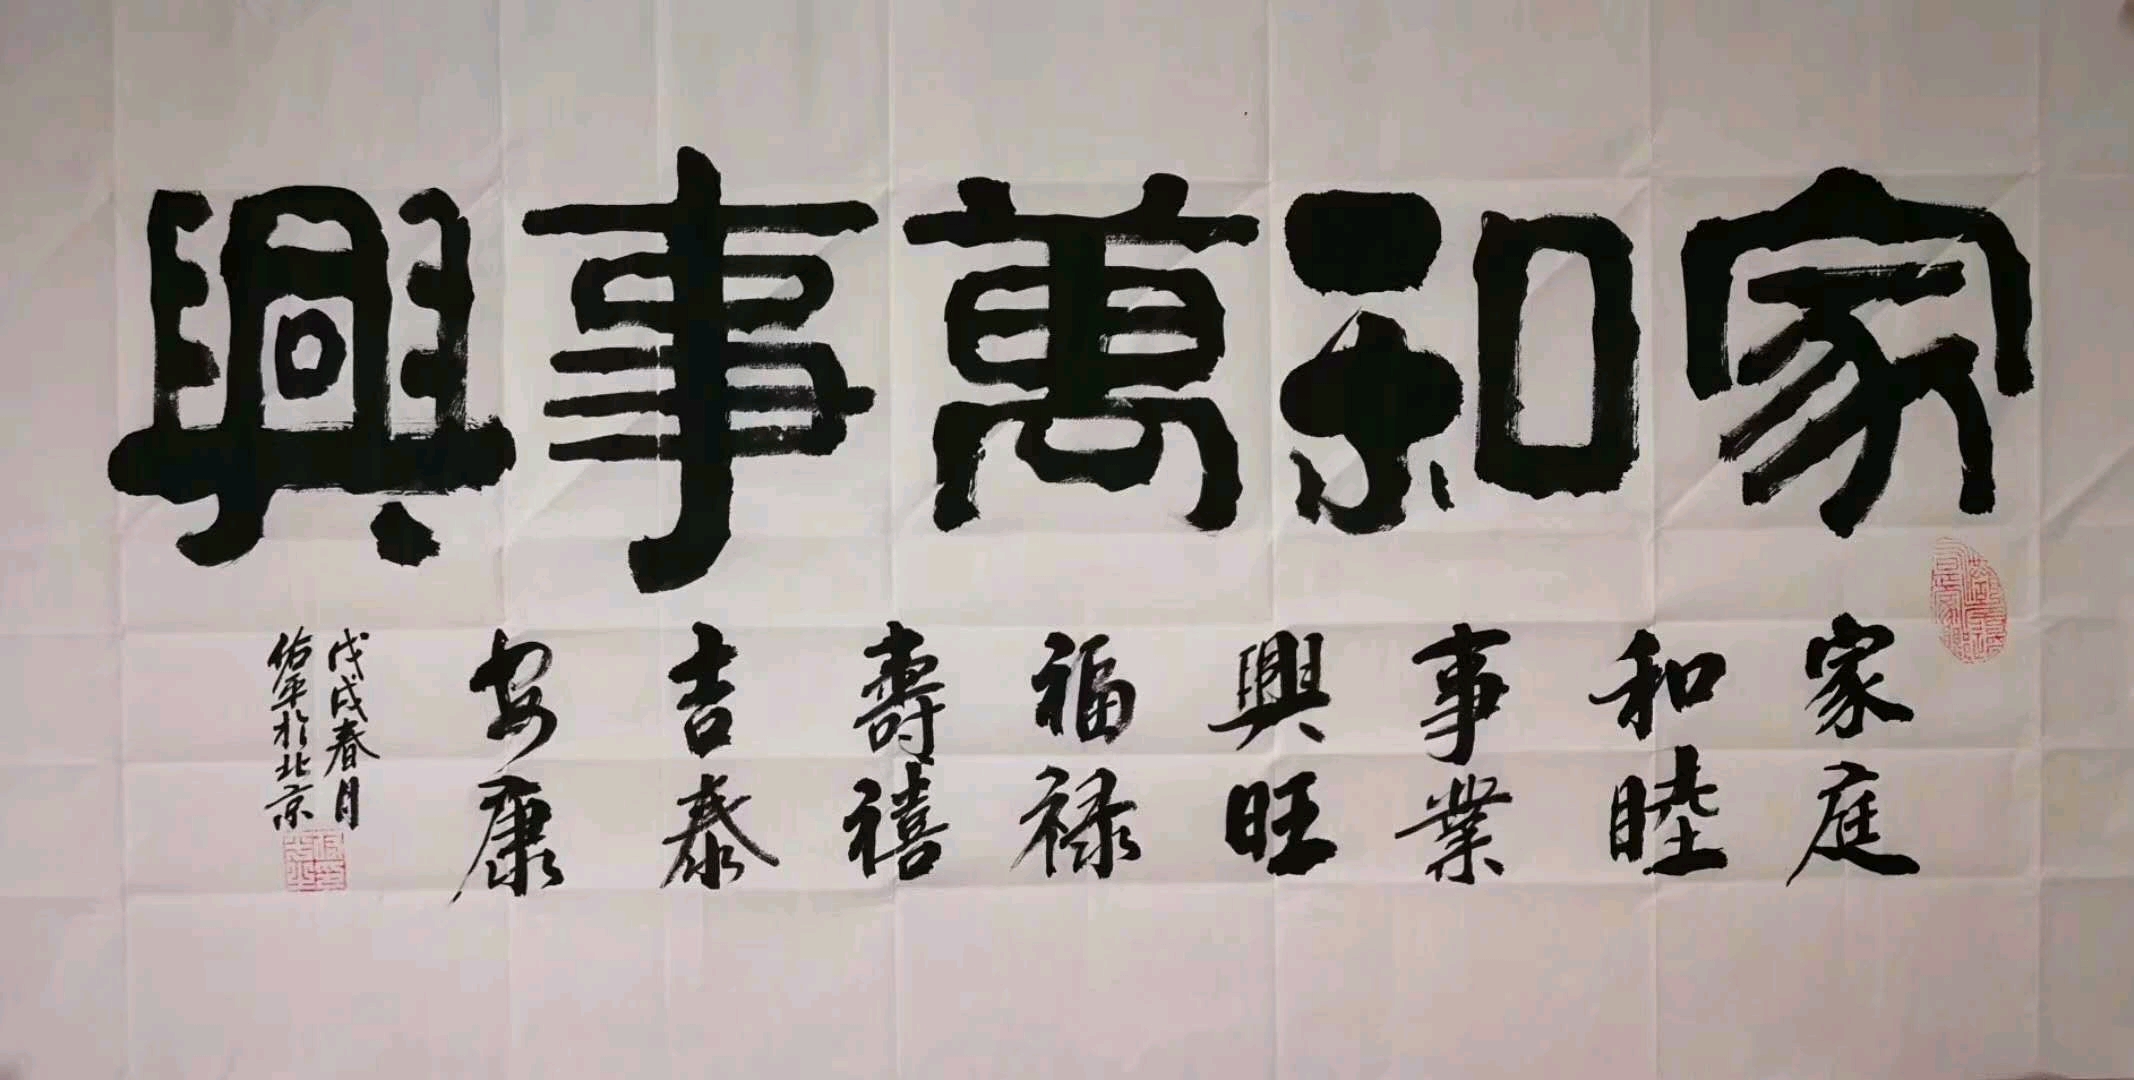 家和萬事興
家庭
和睦
事業
興旺
福禄
壽禧
吉泰
安康
戊戌春月
佑平於北京